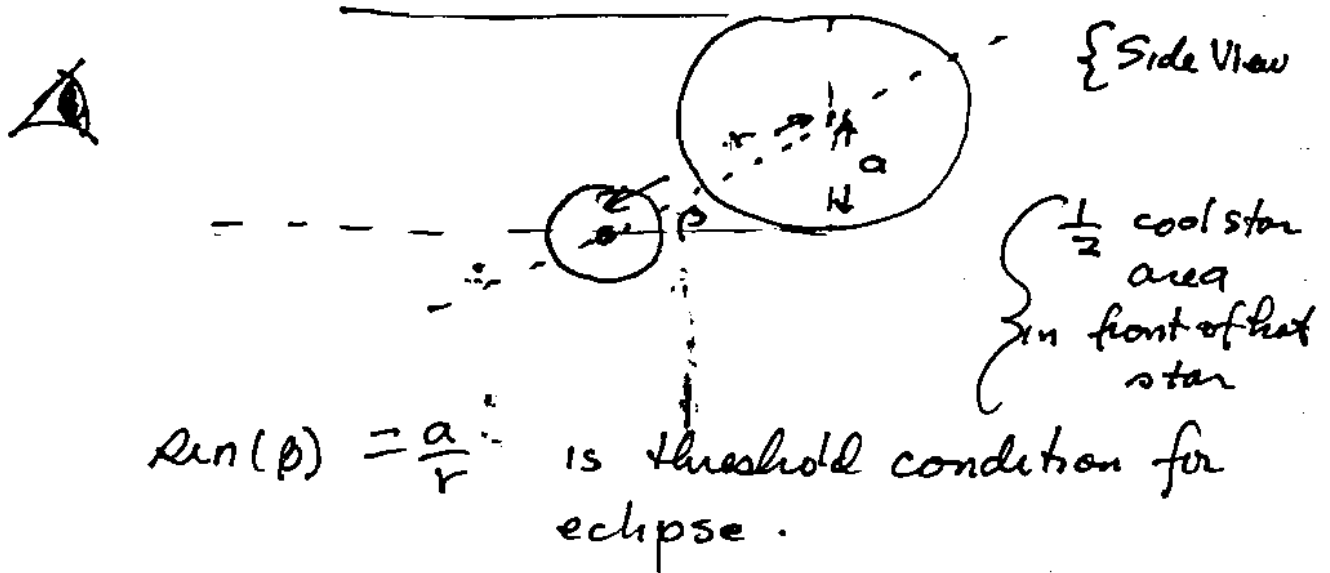 { Side View
r
a
β
1/2 cool star
area
in front of hot
star
sin(β) = a/r is threshold condition for
eclipse.